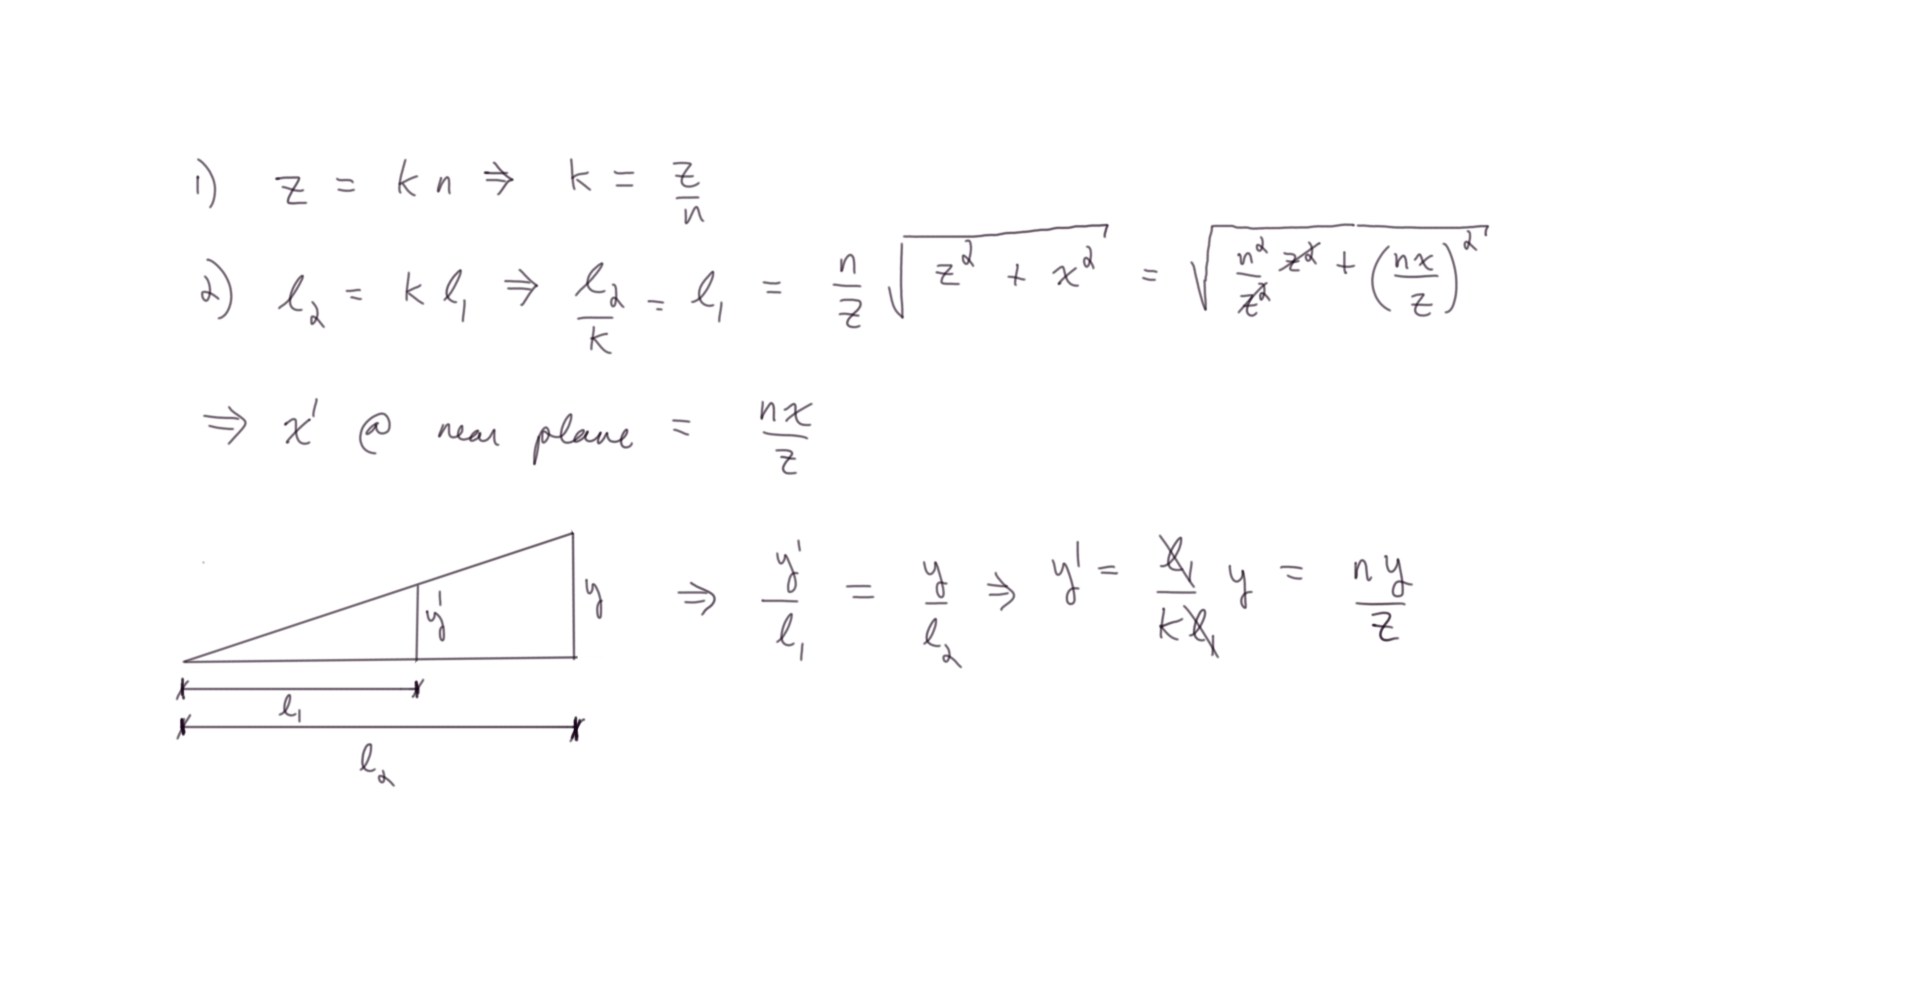 1) z = k n ⇒ k = z/n
2) l₂ = k l₁ ⇒ l₂/k = l₁ = n/z √(z² + x²) = √(n²/z² z² + (nx/z)²)
⇒ x' @ near plane = nx/z
y' y ⇒ y'/l₁ = y/l₂ ⇒ y' = l₁/(k l₁) y = ny/z
l₁
l₂